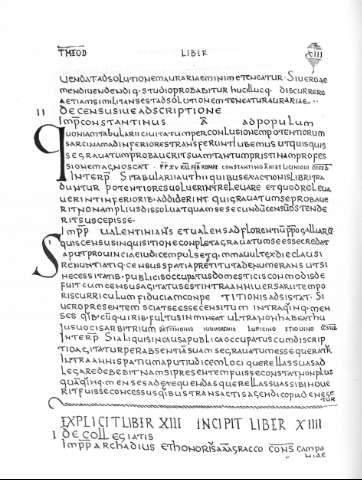 THEOD LIBER XIII
UENDAT ADSOLUTIONEM AURARIAE MINIME TENEATUR· SIUERO AE
MENDI UENDENDIQ· STUDIO PROBABITUR HUC ILLUCQ· DISCURRERE
AETIAM SIMILITANS EST ADSOLUTIONEM TENEATUR AURARIAE··
II DE CENSU SIUE ADSCRIPTIONE
IMP CONSTANTINUS A AD POPULUM
QUONIAM TABULARII CIUITATUM PER CONLUSIONEM POTENTIORUM
SARCINAM AD INFERIORES TRANSFERUNT IUBEMUS UT QUISQUIS
SE GRAUATUM PROBAUERIT SUAM TANTUM PRISTINAM PROFES
SIONEM AGNOSCAT·
INTERP SI TABULARII AUT HI QUIBUS EXACTIONIS LIBRI TRA
DUNTUR POTENTIORES UOLUERINT RELEUARE ET QUOD RELEUA
UERINT INFERIORIB· ADDIDERINT QUI GRAUATUM SE PROBAUE
RIT NON AMPLIUS DISSOLUAT QUAM SE SECUNDUM CENSUS OSTENDE
RIT SUSCEPISSE·
IMPP UALENTINIANS ET UALENS AD FLORENTIUM PP GALLIAR
SI QUIS CENSUS INQUISITIONE CONPLETA GRAUATUM SE ESSE CREDAT
APUT PROUINCIAE IUDICEM PULSET
NECESSITATIB· PUBLICIS OCCUPATUS DOMESTICIS COMMODIS DE
FUIT CUM CENSUS AGITATUS EST INTRA ANNIUERSARII TEMPO
RIS CURRICULUM FIDUCIAM CONPETITIONIS ADSISTAT· SI
UERO PRESENTEM SCIAT SE ESSE CENSITUM INTRA QUINQ· MEN
INTERP SI ALIQUIS IN CAUSA PUBLICA OCCUPATUS CUM DISCRIP
TIO AGITATUR PER ABSENTIA SUAM SE GRAUATUM ESSE QUERATUR
INTRA ANNI SPATIUM APUT IUDICEM LOCI QUERELLAS SUAS AD
LEGARE DEBEBIT NAM SI PRESENTEM FUISSE CONSTAT NON PLUS
QUAM QUINQ· MENSES AD EXSEQUENDAS QUERELLAS SUAS SIBI NOUE
RIT FUISSE CONCESSUS QUIBUS TRANSACTIS AGENDI COPIA DENEGE
TUR
EXPLICIT LIBER XIII INCIPIT LIBER XIIII
I DE COLLEGIATIS
IMPP ARCHADIUS ET HONORIS AA GRACCO CONS CAMPA
NIAE